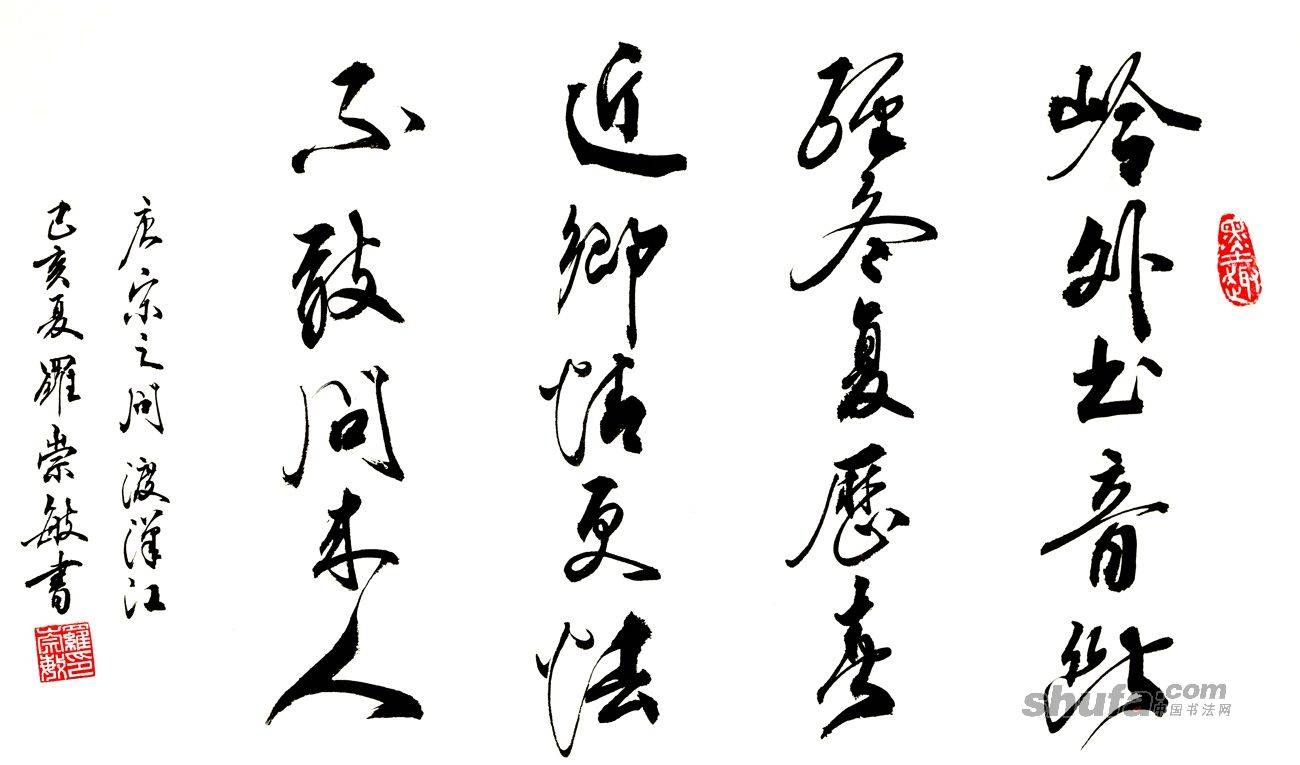 岭外书音断
经冬复歷春
近鄉情更怯
不敢问来人
唐宋之问 渡漢江
己亥夏 羅崇敏書
羅崇敏印
shufa.com
中国书法网